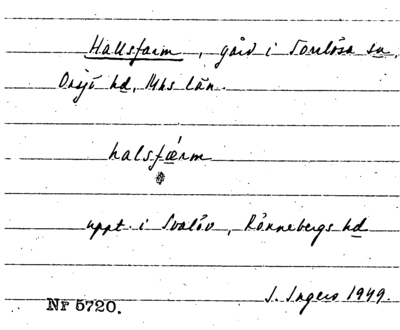 Hallsfarm, gård i Torrlösa sn,
Onsjö hd, Mhs län.
halsfærm
uppt. i Svalöv, Rönnebergs hd
I. Ingers 1949.
Nr 5720.